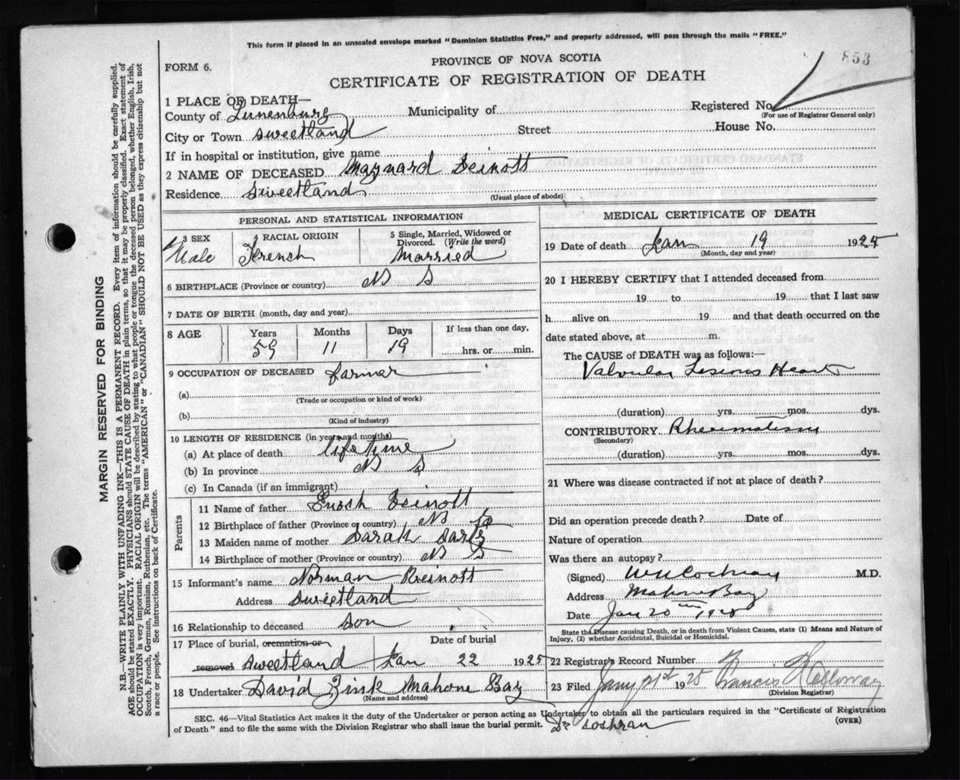 This form if placed in an unsealed envelope marked "Dominion Statistics Free," and properly addressed, will pass through the mails "FREE."
853
FORM 6.
PROVINCE OF NOVA SCOTIA
CERTIFICATE OF REGISTRATION OF DEATH
1 PLACE OF DEATH—
County of Lunenburg Municipality of Registered No.
(For use of Registrar General only)
City or Town Sweetland Street House No.
If in hospital or institution, give name
2 NAME OF DECEASED Maynard Feinott
Residence Sweetland (Usual place of abode)
PERSONAL AND STATISTICAL INFORMATION
3 SEX Male
4 RACIAL ORIGIN French
5 Single, Married, Widowed or Divorced. (Write the word) Married
6 BIRTHPLACE (Province or country) N S
7 DATE OF BIRTH (month, day and year)
8 AGE Years 59 Months 11 Days 19 If less than one day, hrs. or min.
9 OCCUPATION OF DECEASED farmer
(a) (Trade or occupation or kind of work)
(b) (Kind of industry)
10 LENGTH OF RESIDENCE (in years and months)
(a) At place of death life time
(b) In province N S
(c) In Canada (if an immigrant)
Parents
11 Name of father Enosh Feinott
12 Birthplace of father (Province or country) N S
13 Maiden name of mother Sarah
14 Birthplace of mother (Province or Country) N S
15 Informant's name Norman Reinott
Address Sweetland
16 Relationship to deceased Son
17 Place of burial, cremation or removal Sweetland Date of burial Jan 22 1925
18 Undertaker David Zink Mahone Bay
(Name and address)
MEDICAL CERTIFICATE OF DEATH
19 Date of death Jan 19 1925
(Month, day and year)
20 I HEREBY CERTIFY that I attended deceased from
19 to 19 that I last saw
h alive on 19 and that death occurred on the
date stated above, at m.
The CAUSE OF DEATH was as follows:—
Valvular Lesions Heart
(duration) yrs. mos. dys.
CONTRIBUTORY Rheumatism
(Secondary)
(duration) yrs. mos. dys.
21 Where was disease contracted if not at place of death?
Did an operation precede death? Date of
Nature of operation
Was there an autopsy?
(Signed) W H Cochran M.D.
Address Mahone Bay
Date Jan 20
State the Disease causing Death, or in death from Violent Causes, state (1) Means and Nature of
Injury, (2) whether Accidental, Suicidal or Homicidal.
22 Registrar's Record Number
23 Filed Jany 21st 1925 Francis
(Division Registrar)
SEC. 46—Vital Statistics Act makes it the duty of the Undertaker or person acting as Undertaker to obtain all the particulars required in the "Certificate of Registration
of Death" and to file the same with the Division Registrar who shall issue the burial permit. Dr Cochran (OVER)
MARGIN RESERVED FOR BINDING
N.B.—WRITE PLAINLY WITH UNFADING INK—THIS IS A PERMANENT RECORD. Every item of information should be carefully supplied.
AGE should be stated EXACTLY. PHYSICIANS should STATE CAUSE OF DEATH in plain terms, so that it may be properly classified. Exact statement of
OCCUPATION is very important. RACIAL ORIGIN will be described by stating to what people or tongue the deceased person belonged, whether English, Irish,
Scotch, French, German, Russian, Ruthenian, etc. The terms "AMERICAN" or "CANADIAN" SHOULD NOT BE USED as they express citizenship but not
a race or people. See instructions on back of Certificate.